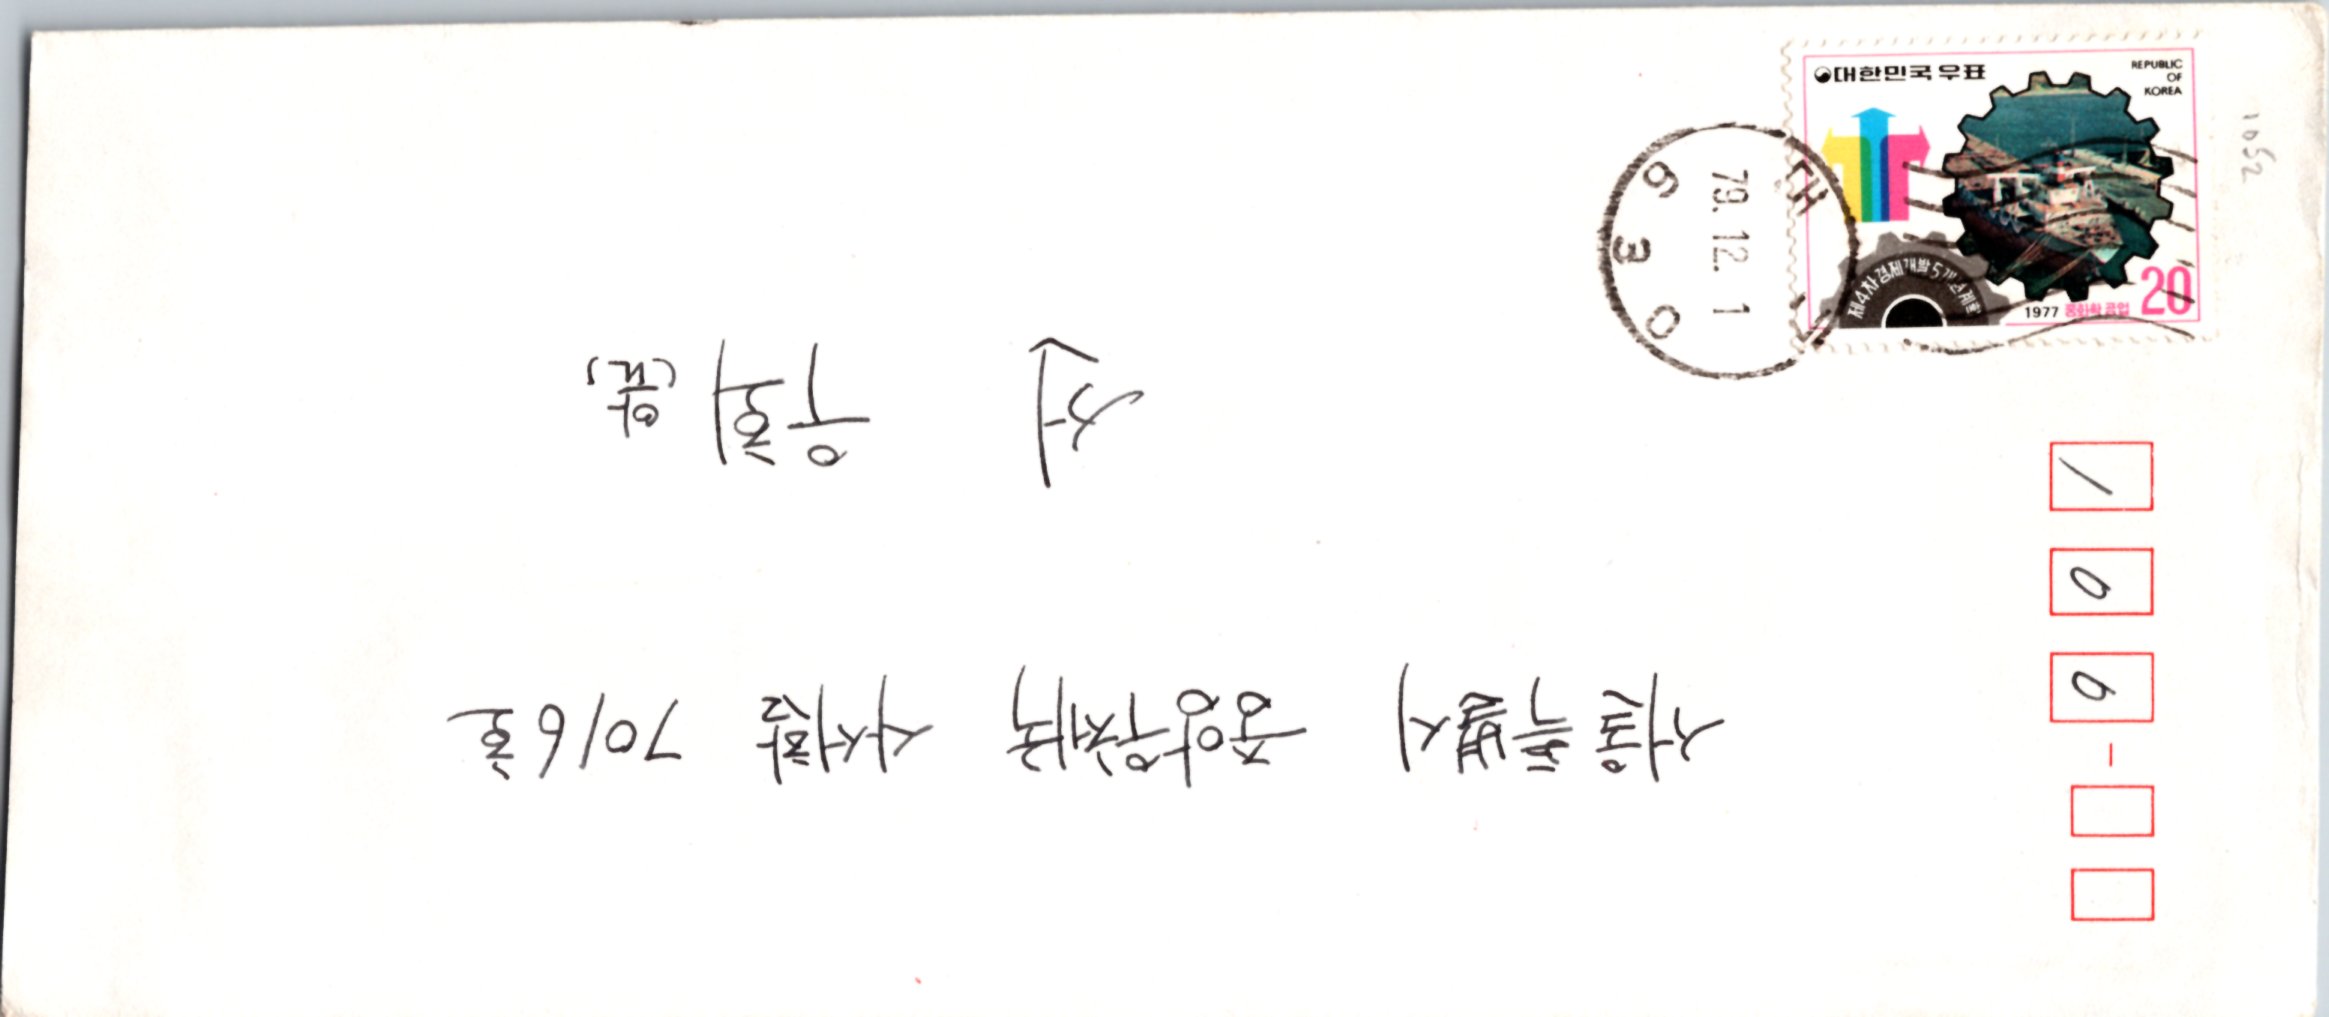 대한민국 우표
REPUBLIC
OF
KOREA
제4차경제개발5개년계획
1977 중화학 공업 20
79.12.1
630
1052
100-
서울특별시 중앙우체국 사서함 7016호
우 앞